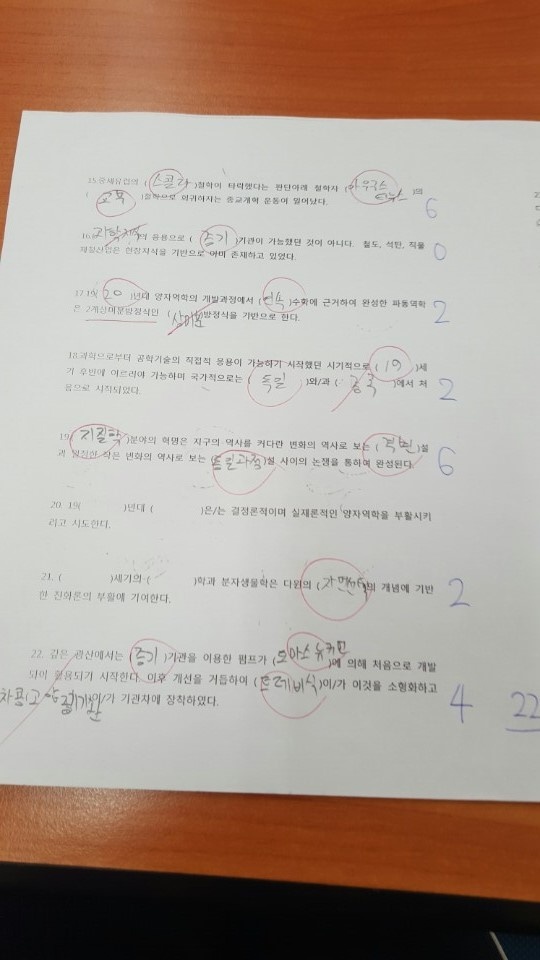 15.중세유럽의 ( 스콜라 )철학이 타락했다는 판단아래 철학자 ( 아우구스티누스 )의
( 교부 )철학으로 회귀하자는 종교개혁 운동이 일어났다.
6
16. 과학지식의 응용으로 ( 증기 )기관이 가능했던 것이 아니다. 철도, 석탄, 직물
제철산업은 현장지식을 기반으로 이미 존재하고 있었다.
0
17.19( 20 )년대 양자역학의 개발과정에서 ( 연속 )수학에 근거하여 완성한 파동역학
은 2계상미분방정식인 ( 상미분 )방정식을 기반으로 한다.
2
18.과학으로부터 공학기술의 직접적 응용이 가능하기 시작했던 시기적으로 ( 19 )세
기 후반에 이르러야 가능하며 국가적으로는 ( 독일 )와/과 ( 중국 )에서 처
음으로 시작되었다.
2
19.( 지질학 )분야의 혁명은 지구의 역사를 커다란 변화의 역사로 보는 ( 격변 )설
과 일정한 작은 변화의 역사로 보는 ( 동일과정 )설 사이의 논쟁을 통하여 완성된다.
6
20. 19( )년대 ( )은/는 결정론적이며 실재론적인 양자역학을 부활시키
려고 시도한다.
21. ( )세기의 ( )학과 분자생물학은 다윈의 ( 자연선택 )의 개념에 기반
한 진화론의 부활에 기여한다.
2
22. 깊은 광산에서는 ( 증기 )기관을 이용한 펌프가 ( 토마스 뉴커먼 )에 의해 처음으로 개발
되어 활용되기 시작한다. 이후 개선을 거듭하여 ( 트레비식 )이/가 이것을 소형화하고
차용( 고압증기기관 )이/가 기관차에 장착하였다.
4
22